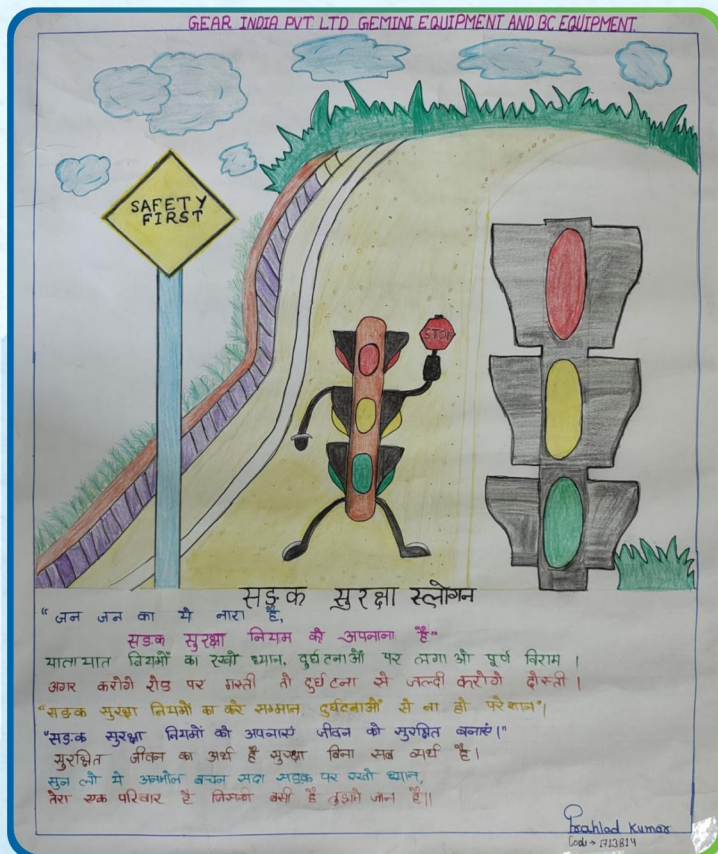 GEAR INDIA PVT. LTD GEMINI EQUIPMENT AND BC EQUIPMENT.
SAFETY
FIRST
STOP
सड़क सुरक्षा स्लोगन
"जन जन का ये नारा है,
सडक सुरक्षा नियम को अपनाना है"
यातायात नियमों का रखो ध्यान, दुर्घटनाओं पर लगाओ पूर्ण विराम |
अगर करोगे रोड पर मस्ती तो दुर्घटना से जल्दी करोगे दोस्ती |
"सडक सुरक्षा नियमों का करे सम्मान, दुर्घटनाओं से ना हो परेशान"|
"सडक सुरक्षा नियमों को अपनाएं जीवन को सुरक्षित बनाएं|"
सुरक्षित जीवन का अर्थ है सुरक्षा बिना सब व्यर्थ है|
सुन लो ये अनमोल वचन सदा सड़क पर रखो ध्यान,
तेरा एक परिवार है जिसकी बसी है तुझमे जान है||
Prahlad Kumar
Code → 1713814